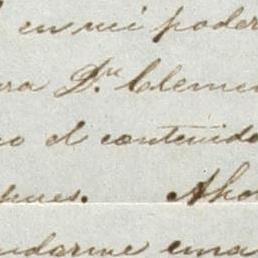 en mi poder
ra Dn Clemen
o el contenido
pues. Aho
udarme una